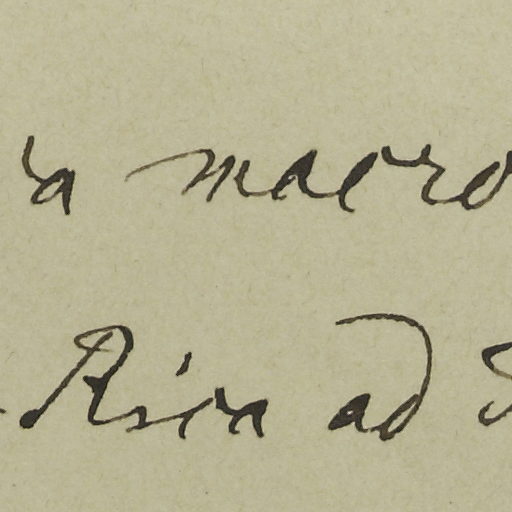 a macro
Rica ad